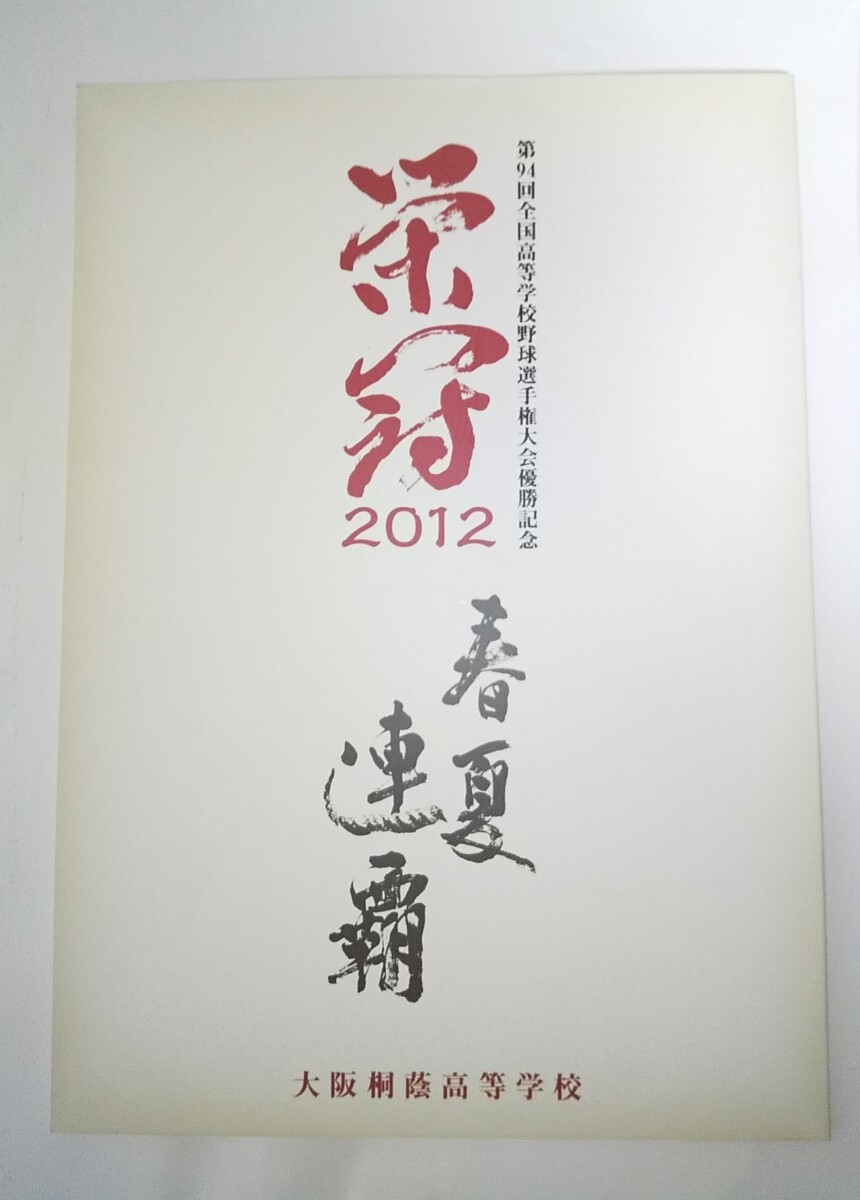 第94回全国高等学校野球選手権大会優勝記念
栄冠
2012
春夏
連覇
大阪桐蔭高等学校